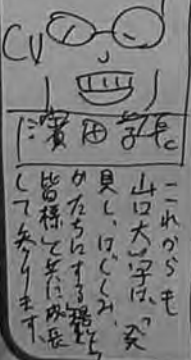 CV
濱田学長。
これからも
山口大学は、「発
見し、はぐくみ、
かたちにする知の広場」を
皆様と共に成長
して参ります。